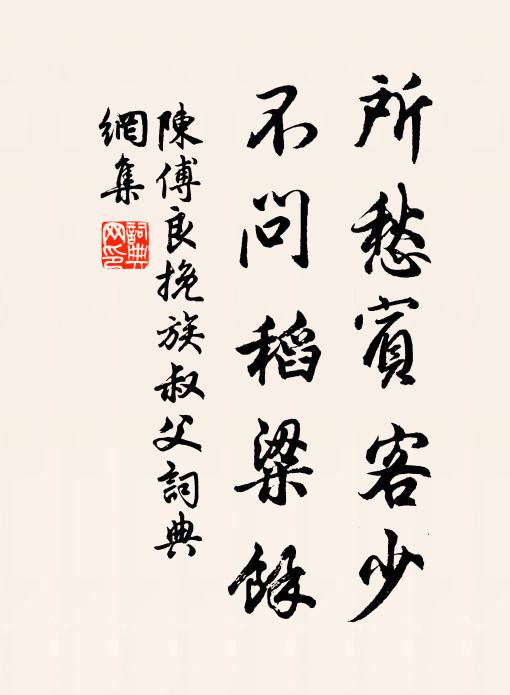 所愁賓客少
不問稻粱餘
陳傅良挽族叔父詞典
網集
詞典
网印